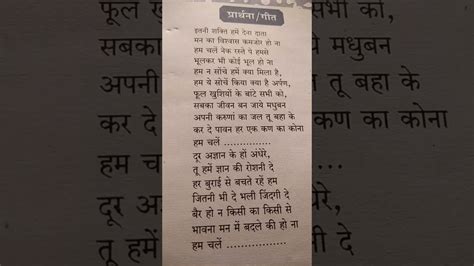 प्रार्थना/गीत
इतनी शक्ति हमें देना दाता
मन का विश्वास कमजोर हो ना
हम चलें नेक रस्ते पे हमसे
भूलकर भी कोई भूल हो ना
हम न सोचें हमें क्या मिला है,
हम ये सोचें किया क्या है अर्पण,
फूल खुशियों के बांटे सभी को,
सबका जीवन बन जाये मधुबन
अपनी करुणां का जल तू बहा के
कर दे पावन हर एक कण का कोना
हम चलें ...............
दूर अज्ञान के हों अंधेरे,
तू हमें ज्ञान की रोशनी दे
हर बुराई से बचते रहें हम
जितनी भी दे भली जिंदगी दे
बैर हो न किसी का किसी से
भावना मन में बदले की हो ना
हम चलें .................